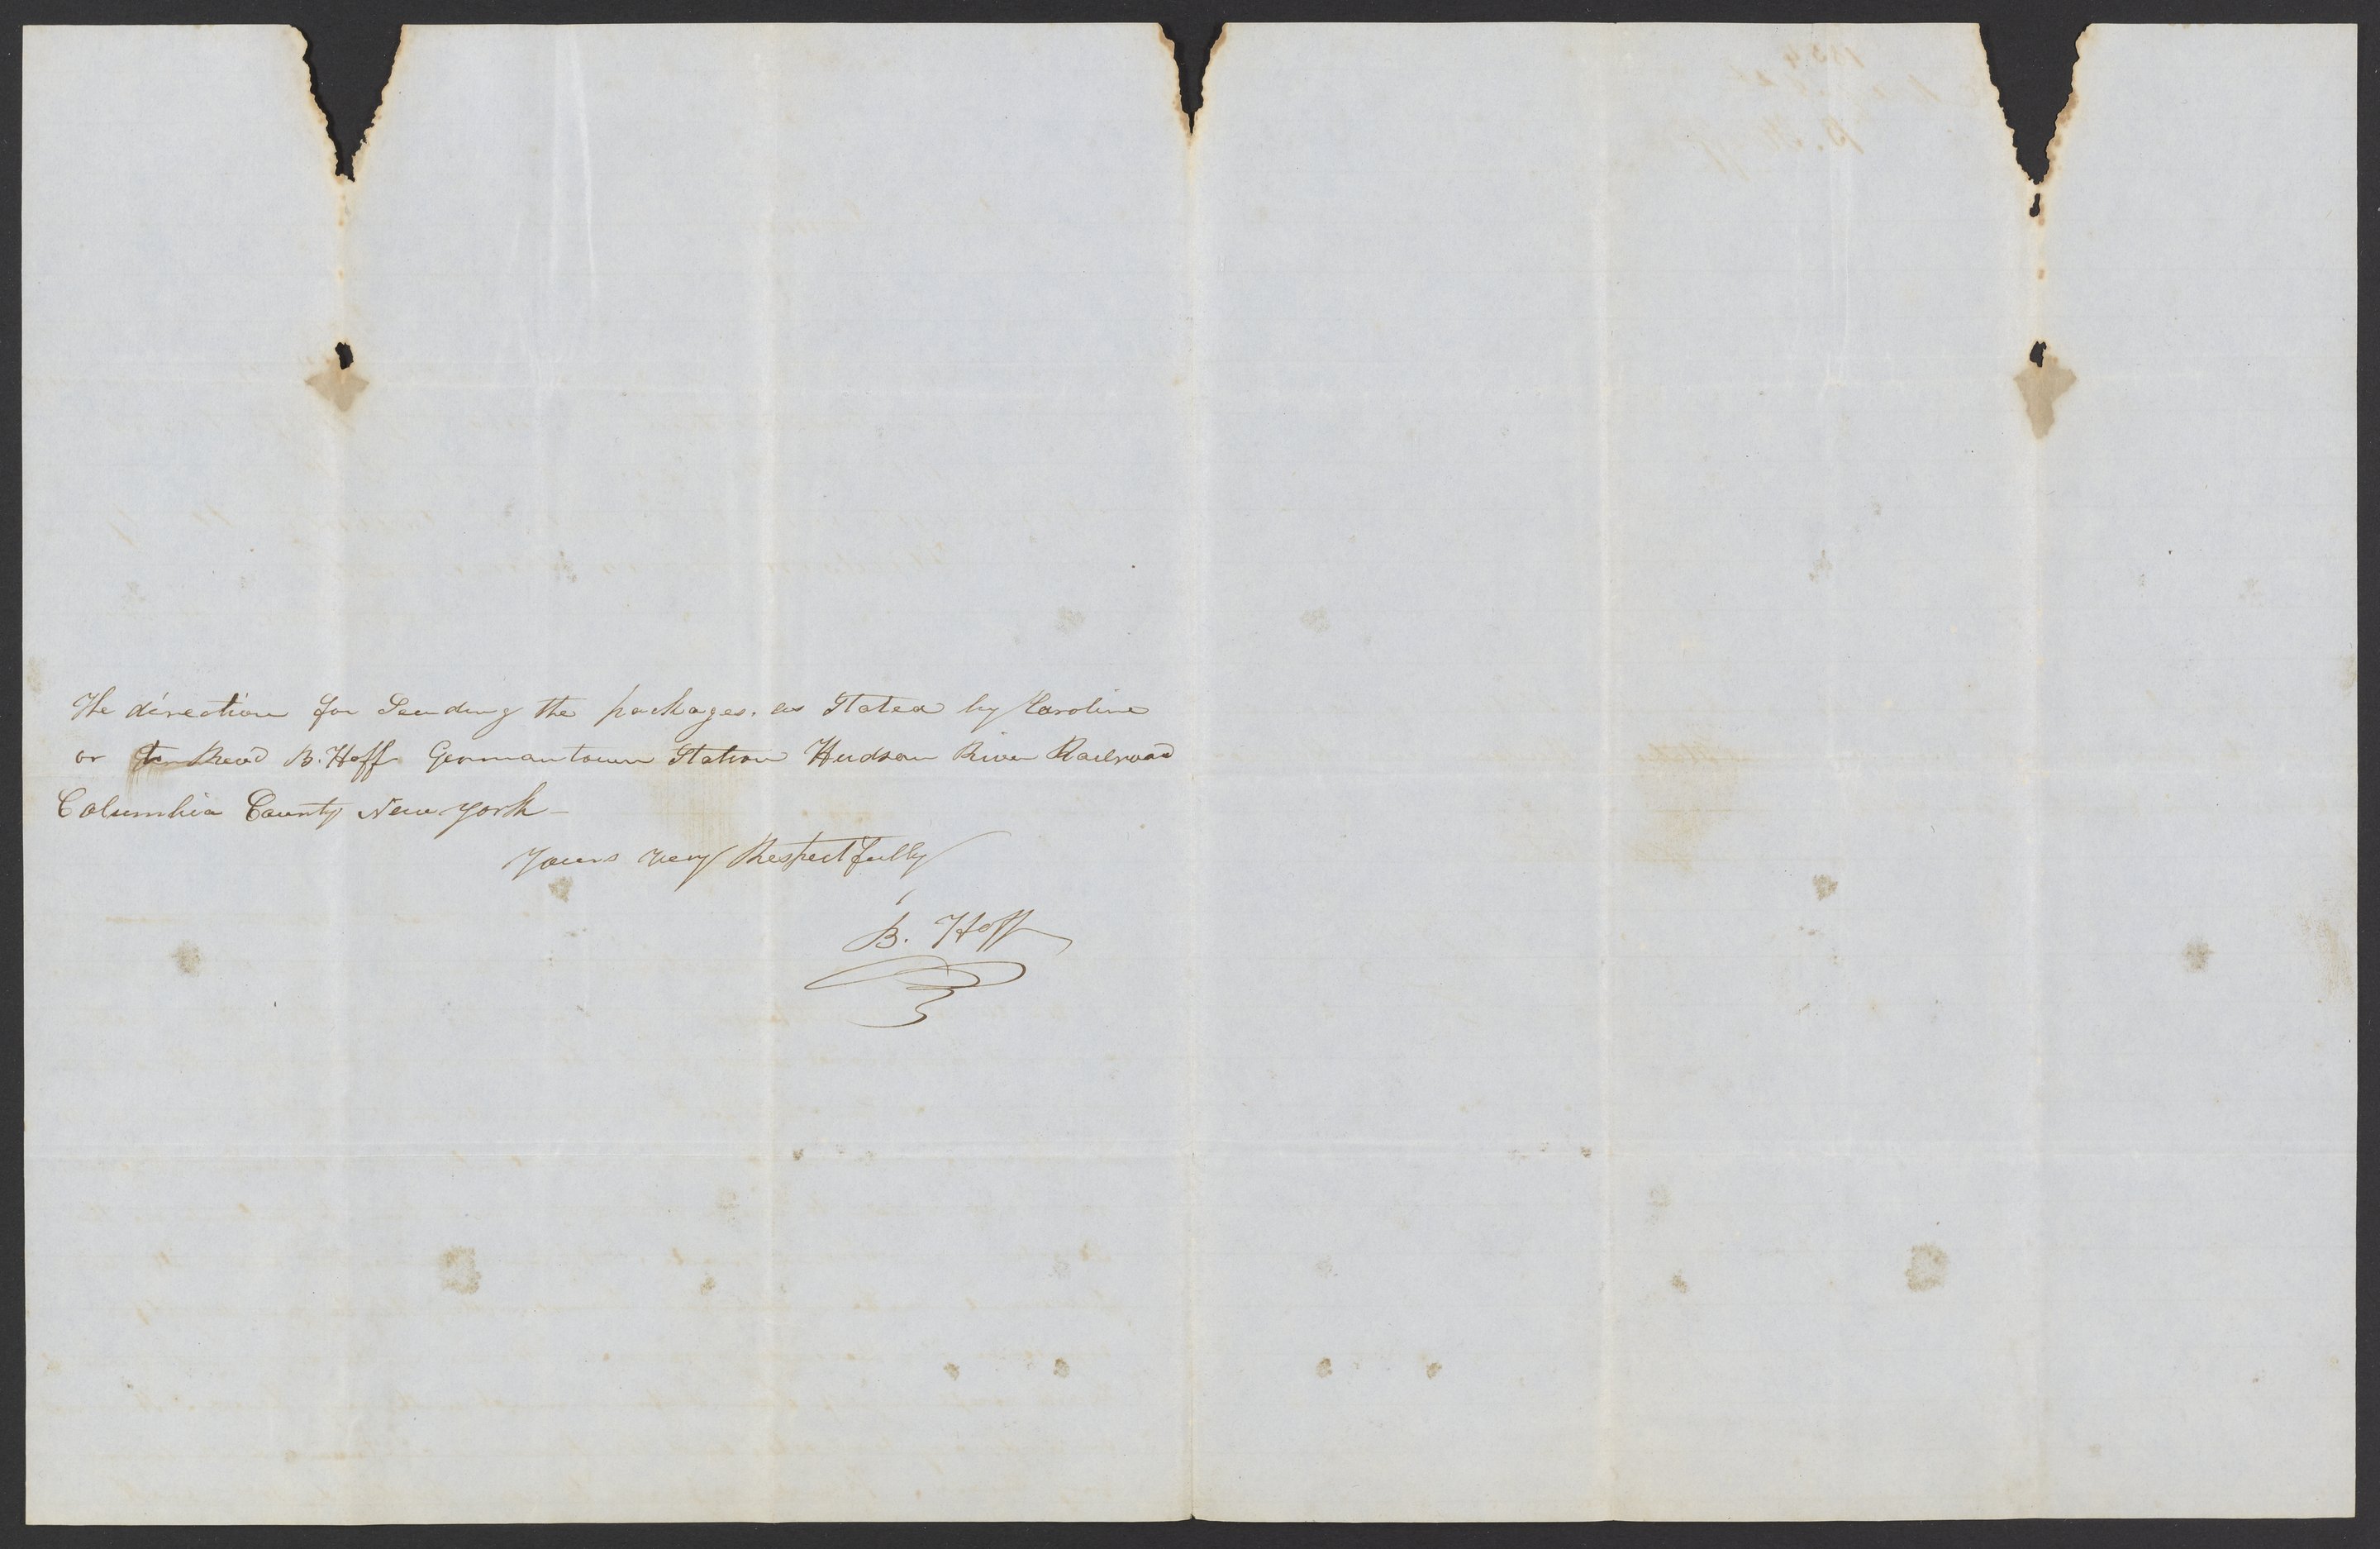 The direction for Sending the packages. as Stated by Caroline
or to Rev'd B. Hoff Germantown Station Hudson River Railroad
Columbia County New York –
Yours very Respectfully
B. Hoff